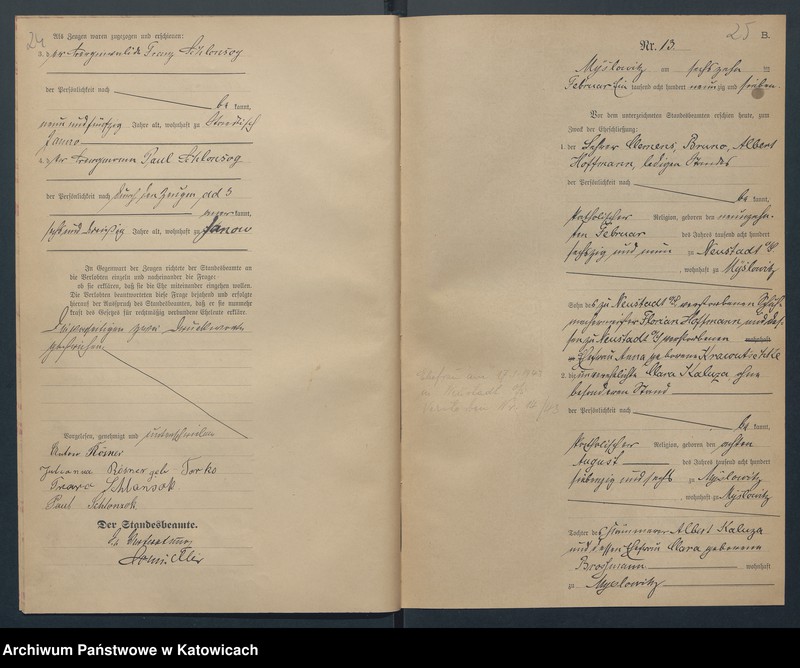 24
Als Zeugen waren zugezogen und erschienen:
3. der Franz Schlonsog
der Persönlichkeit nach
be kannt,
neun und fünfzig Jahre alt, wohnhaft zu
Janow
4. der Paul Schlonsog
der Persönlichkeit nach durch den Zeugen ad 3
kannt,
sechs und dreißig Jahre alt, wohnhaft zu Janow
In Gegenwart der Zeugen richtete der Standesbeamte an
die Verlobten einzeln und nacheinander die Frage:
ob sie erklären, daß sie die Ehe miteinander eingehen wollen.
Die Verlobten beantworteten diese Frage bejahend und erfolgte
hierauf der Ausspruch des Standesbeamten, daß er sie nunmehr
kraft des Gesetzes für rechtmäßig verbundene Eheleute erkläre.
zwei Druckworte
gestrichen.
Vorgelesen, genehmigt und unterschrieben
Anton Rösner
Johanna Rösner geb
Franz
Paul Schlonsok
Der Standesbeamte.
In Vertretung
25
B.
Nr. 13.
Myslowitz am sechszehn ten
Februar ein tausend acht hundert neunzig und sieben.
Vor dem unterzeichneten Standesbeamten erschien heute, zum
Zweck der Eheschließung:
1. der Lehrer Clemens, Bruno, Albert
Hoffmann, ledigen Standes
der Persönlichkeit nach
be kannt,
katholischer Religion, geboren den neunzehn-
ten Februar des Jahres tausend acht hundert
sechszig und neun zu Neustadt O/S
, wohnhaft zu Myslowitz
Sohn des zu Neustadt O/S verstorbenen
Florian Hoffmann und des-
sen zu Neustadt O/S verstorbenen wohnhaft
Ehefrau Anna geborene
2. die unverehelichte Clara Kaluza, ohne
besonderen Stand
der Persönlichkeit nach
be kannt,
katholischer Religion, geboren den achten
August des Jahres tausend acht hundert
siebenzig und sechs zu Myslowitz
, wohnhaft zu Myslowitz
Tochter des Albert Kaluza
und dessen Ehefrau Clara geborenen
wohnhaft
zu Myslowitz
Archiwum Państwowe w Katowicach